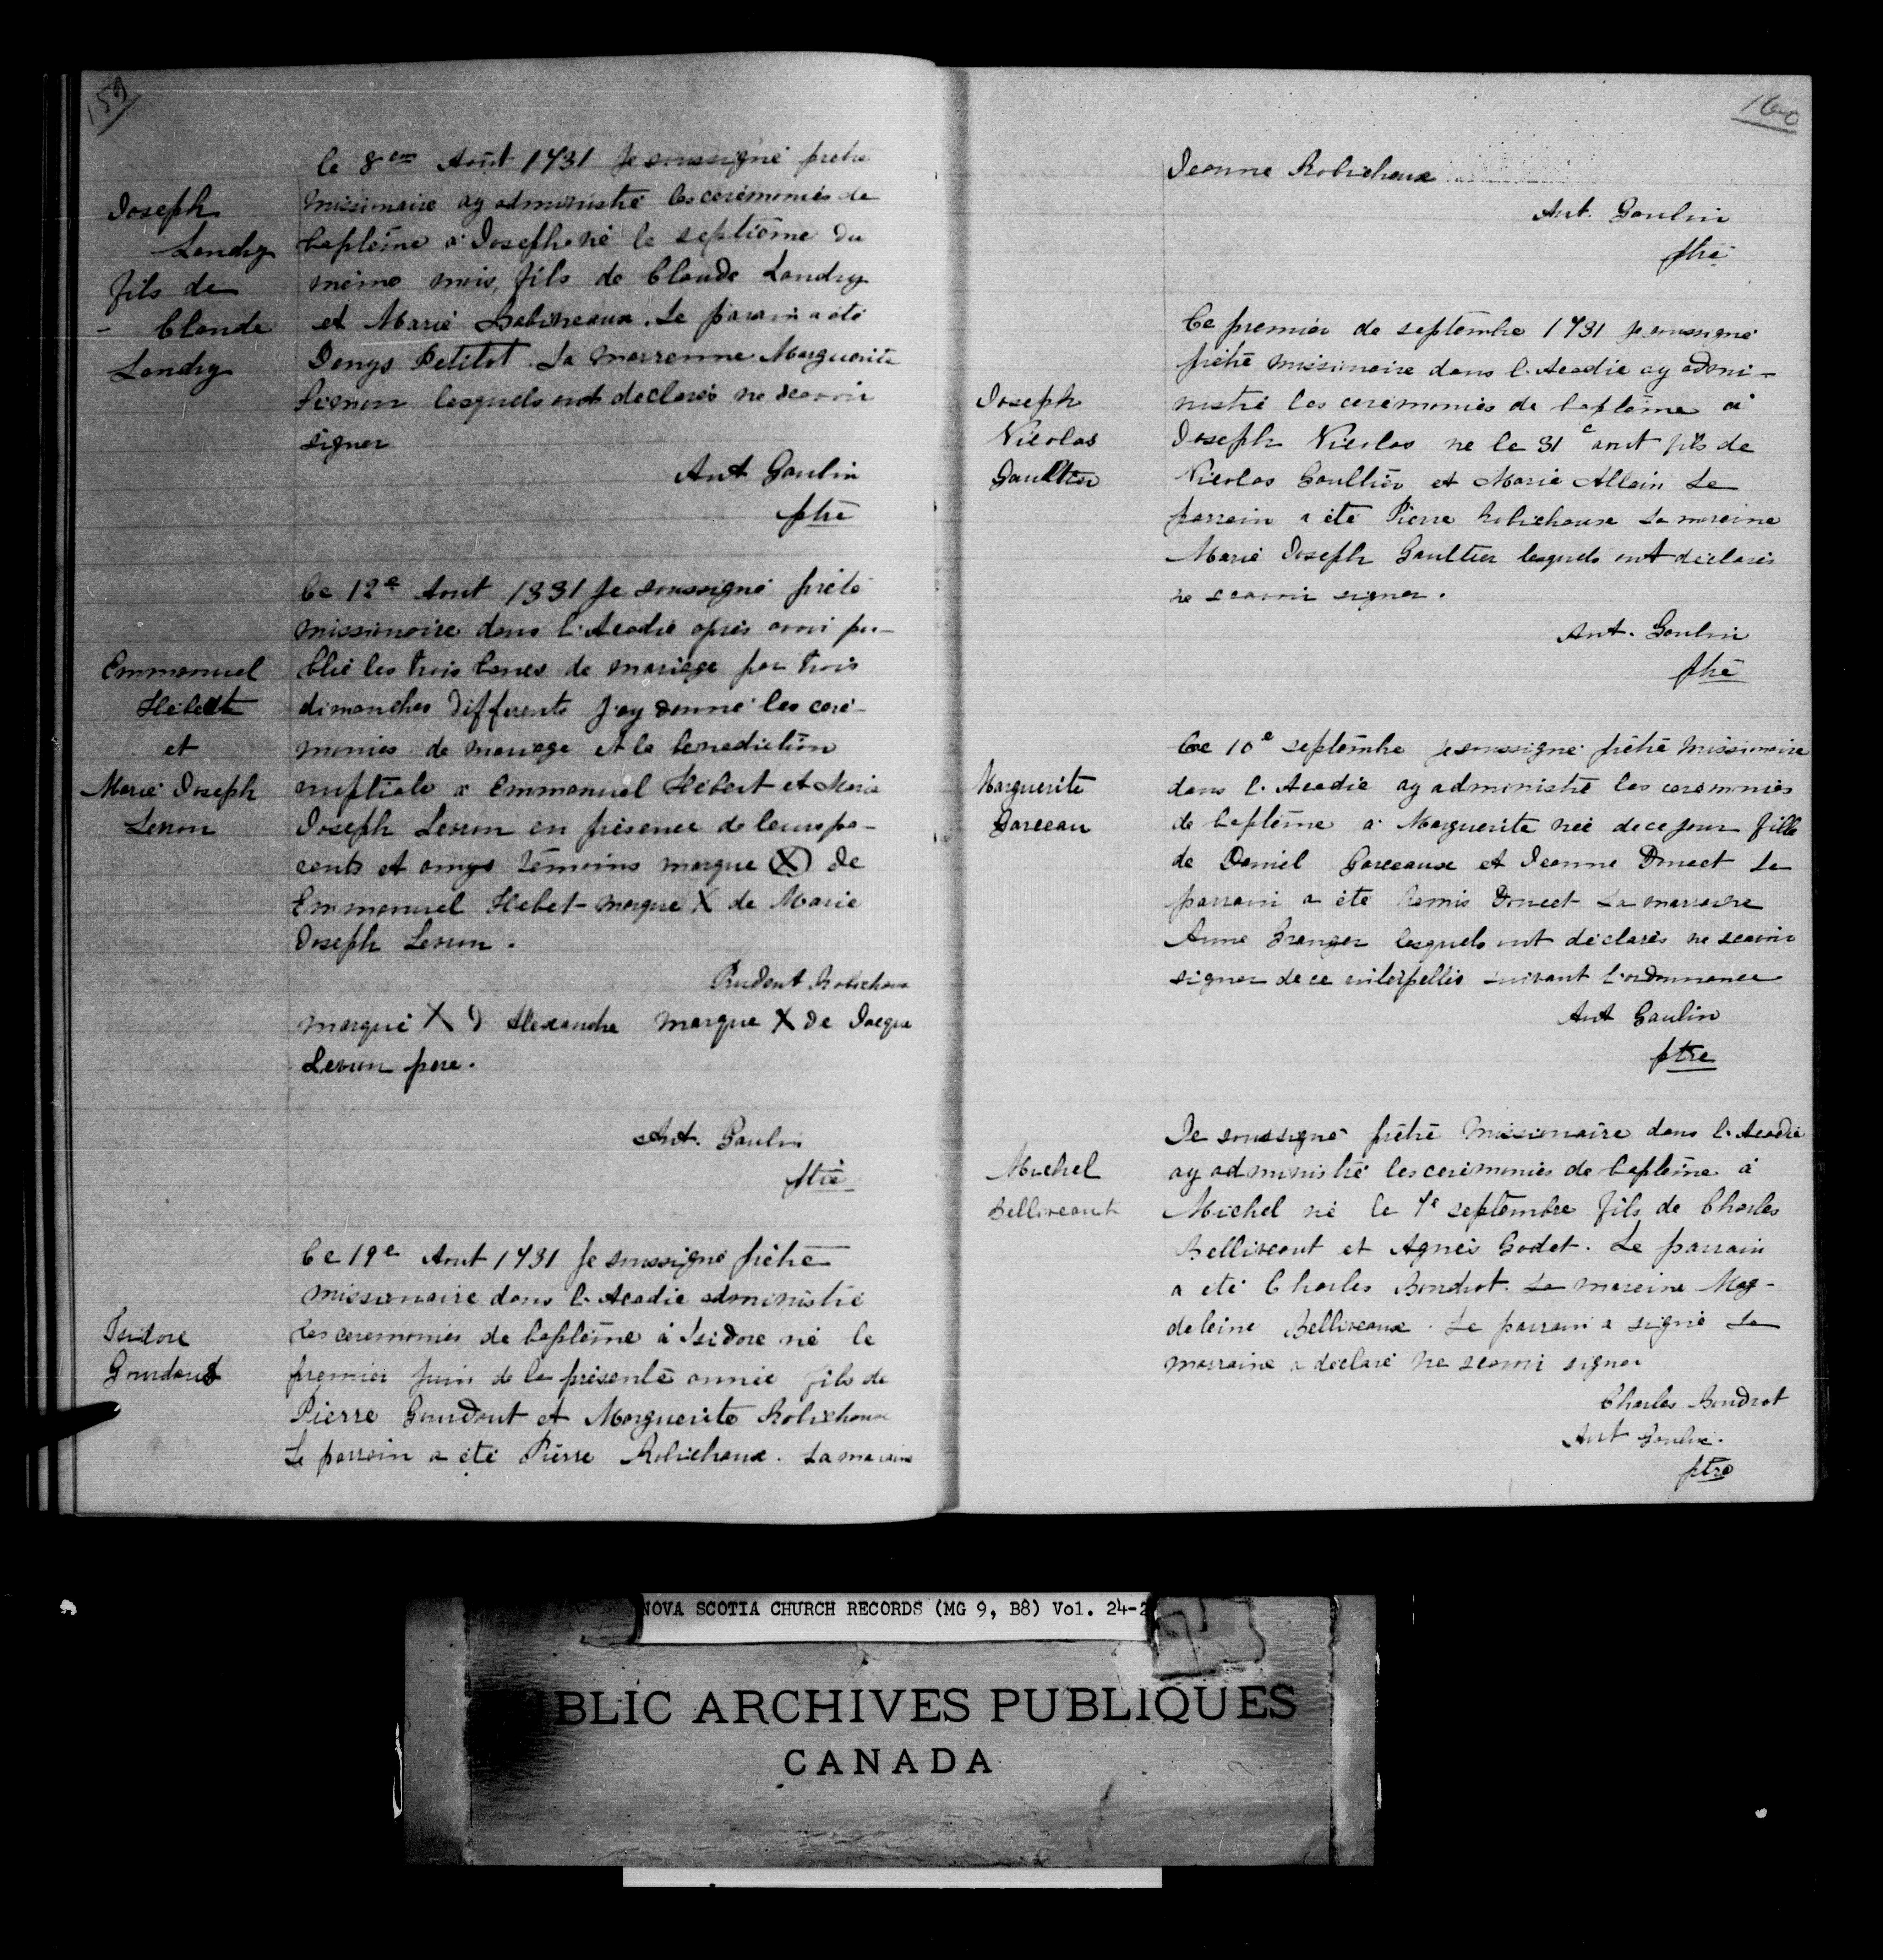 159
le 8em Août 1731 Je soussigné pretre
Joseph
Landry
fils de
- Claude
Landry
missionaire ay administré les ceremonies de
baptême a Joseph né le septième du
même mois, fils de Claude Landry
et Marie Babineaux. Le parain a été
Denys Petitot. La marenne Marguerite
lesquels ont declarés ne scavoir
signer
Ant Gaulin
ptre
Ce 12e Aout 1331 Je soussigné prétê
missionaire dans l'Acadie après avoi pu-
Emmanuel
Hebert
et
Marie Joseph
Lenon
blié les trois bancs de mariage par trois
dimanches differents j'ay donné les cere-
monies de mariage et la benediction
nuptiale a Emmanuel Hebert et Marie
Joseph Lenon en présence de leurs pa-
rents et amys témoins marque X de
Emmanuel Hebet marque X de Marie
Joseph Lenon.
Prudent Robichaux
marque X d Alexandre marque X de Jacque
Lenon pere.
Ant. Gaulin
ptre
Ce 19e Aout 1731 Je soussigné prêtre
missionaire dans l'Acadie administré
Isidore
Gourdaut
les ceremonies de baptême à Isidore né le
premier juin de la présente année fils de
Pierre Gourdout et Marguerite Robichaux
Le parrain a été Pierre Robichaux. La maraine
160
Jeanne Robichaux
Ant. Gaulin
ptre
Ce premier de septembre 1731 je soussigné
prêtre missionaire dans l'Acadie ay admi-
Joseph
Nicolas
Gaultier
nistré les ceremonies de baptême a
Joseph Nicolas ne le 31e aout fils de
Nicolas Gaultier et Marie Allain Le
parrain a été Pierre Robichaux La mareine
Marie Joseph Gaultier lesquels ont declarés
ne scavoir signer.
Ant. Gaulin
ptre
Ce 10e septembre je soussigné prêtre missionaire
Marguerite
Garceau
dans l'Acadie ay administré les ceremonies
de baptême a Marguerite née de ce jour fille
de Daniel Garceaux et Jeanne Doucet Le
parrain a été Remis Doucet La marraine
Anne Granger lesquels ont déclarés ne scavoir
signer de ce enterpellés suivant l'ordonnance
Ant Gaulin
ptre
Je soussigné prêtre missionaire dans l'Acadie
Michel
Belliveaut
ay administré les ceremonies de baptême à
Michel né le 7e septembre fils de Charles
Belliveaut et Agnès Godet. Le parrain
a été Charles Boudrot. La mareine Mag-
deleine Belliveaux. Le parrain a signé La
marraine a declaré ne scavoir signer
Charles Boudrot
Ant Gaulin.
ptre
NOVA SCOTIA CHURCH RECORDS (MG 9, B8) Vol. 24-2
BLIC ARCHIVES PUBLIQUES
CANADA